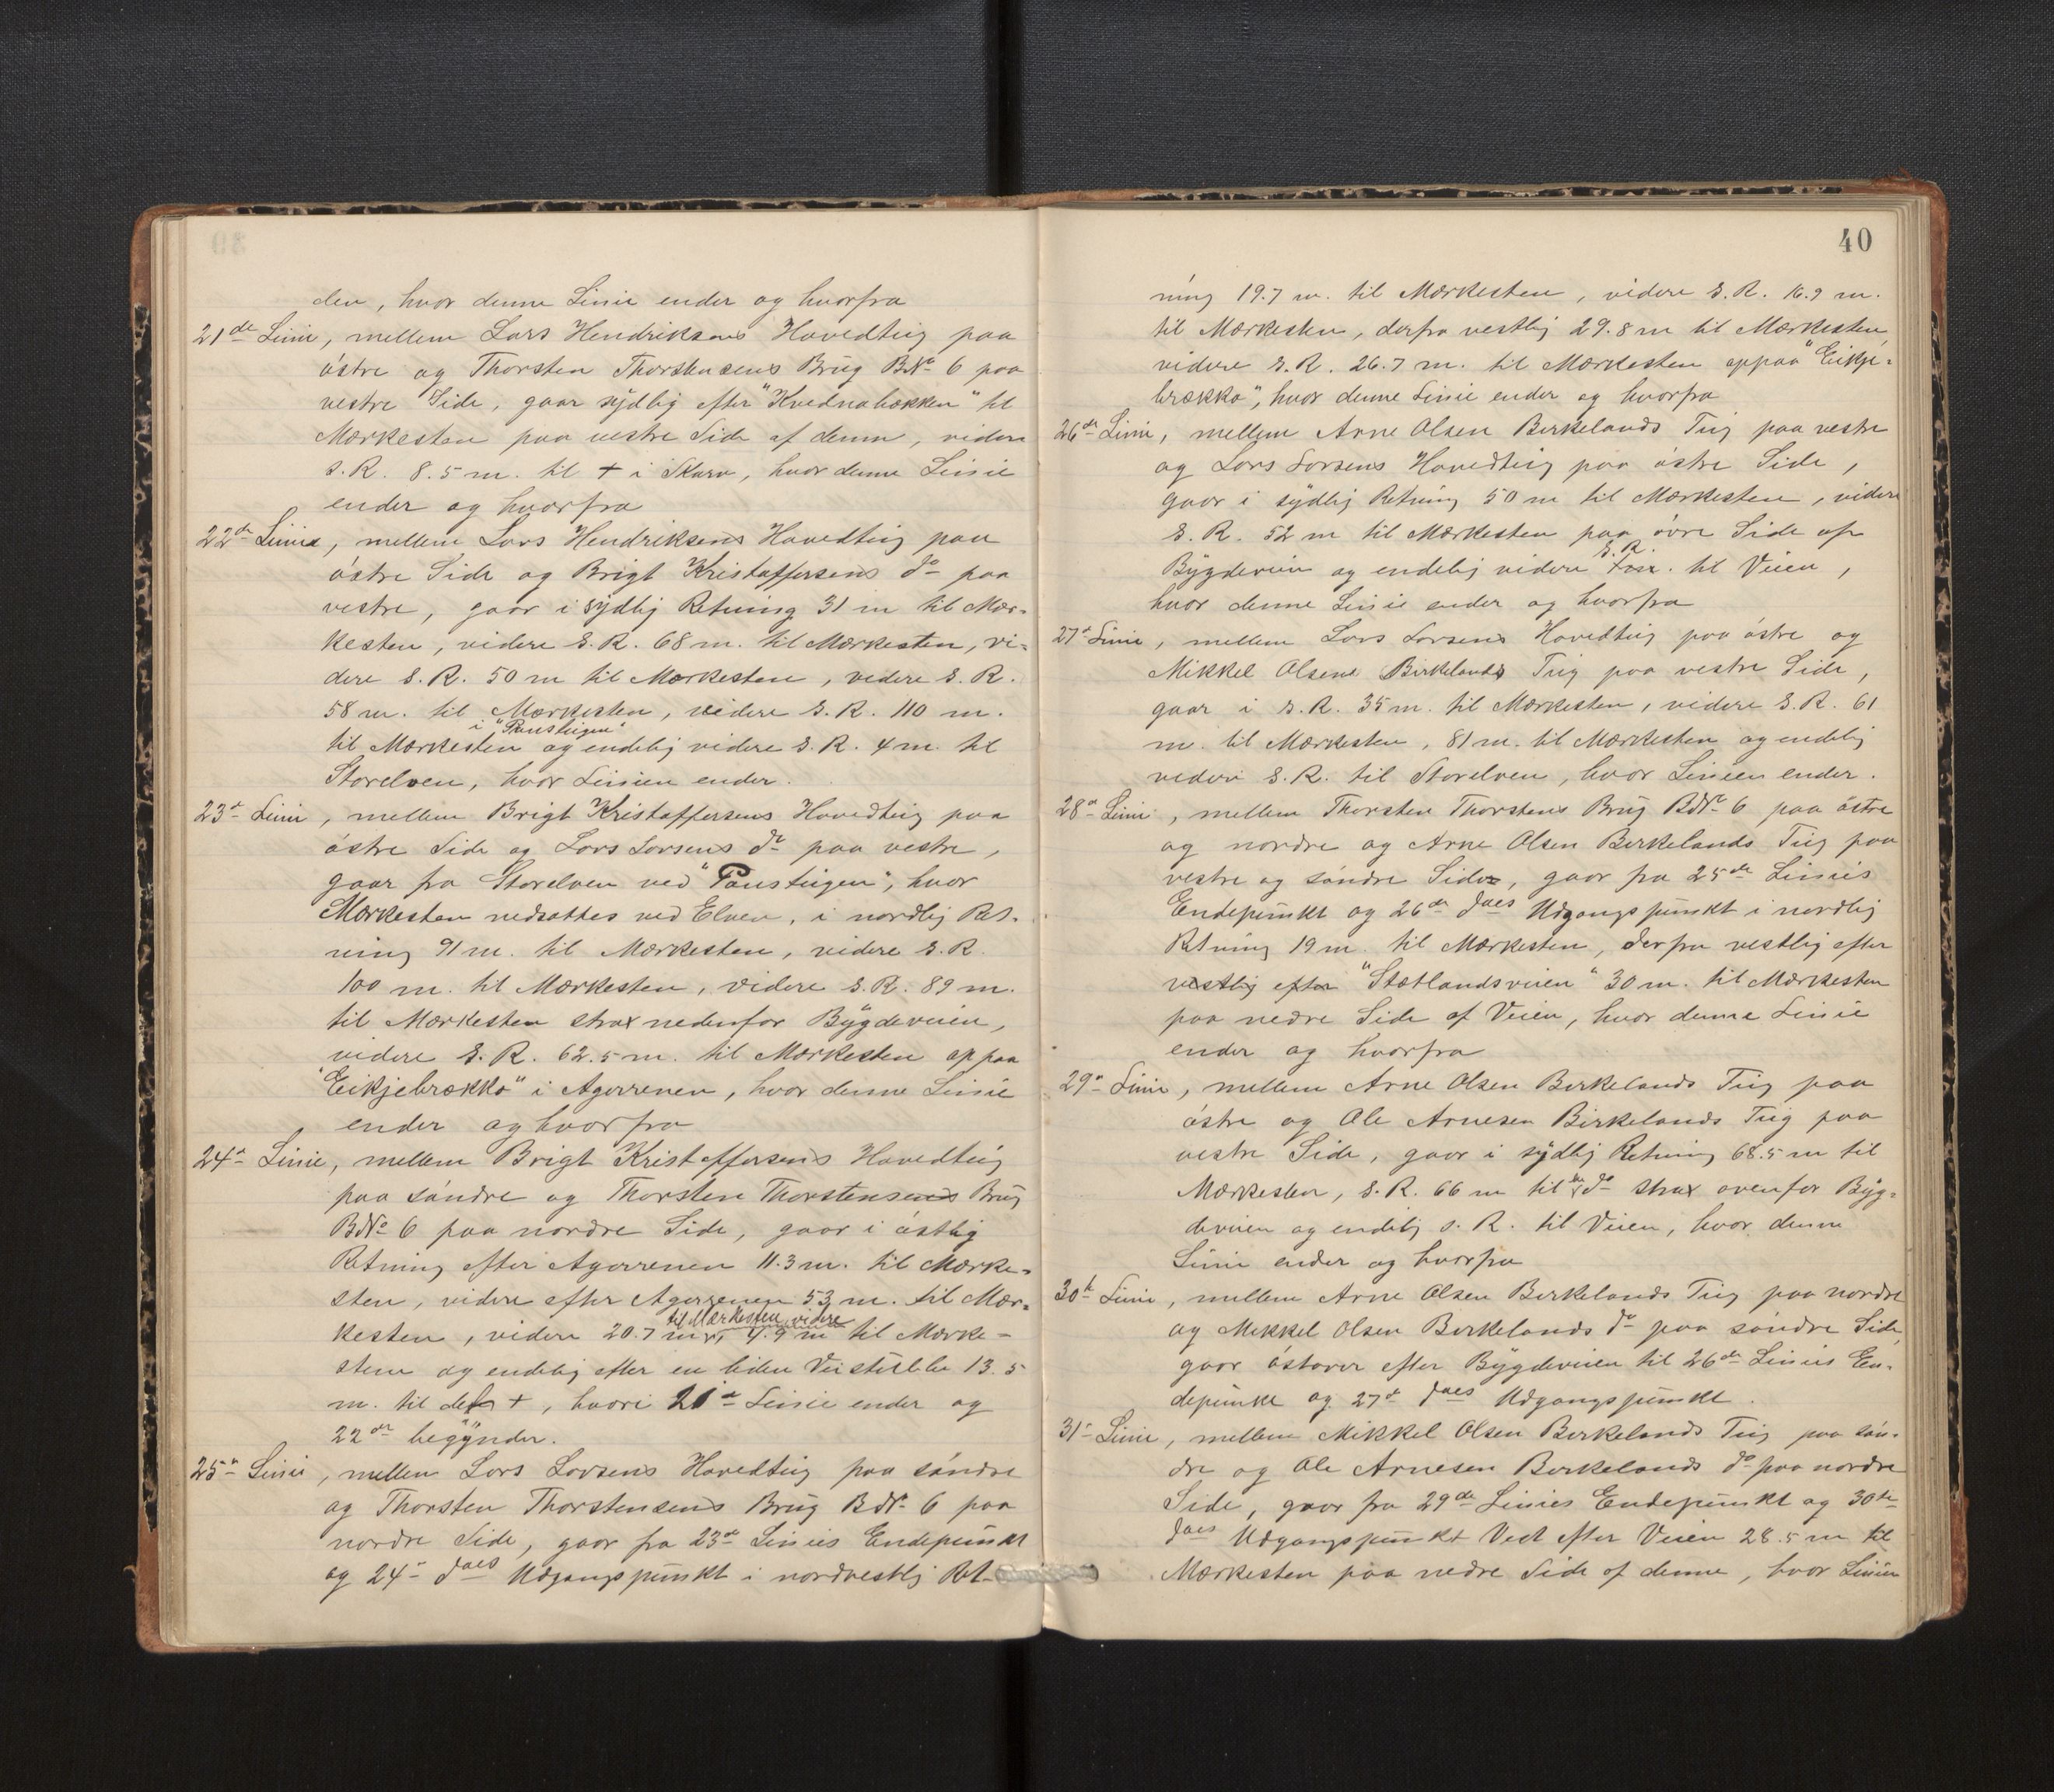 den, hvor denne Linie ender og hvorfra
21de Linie, mellem Lars Hendriksens Hovedteig paa
østre og Thorsten Thorstensens Brug BNo 6 paa
vestre Side, gaar sydlig efter "Kvednabækken" til
Mærkesten paa vestre Side af denne, videre
s. R. 8.5 m. til + i Skarv, hvor denne Linie
ender og hvorfra
22de Linie, mellem Lars Hendriksens Hovedteig paa
østre Side og Brigt Kristoffersens do paa
vestre, gaar i sydlig Retning 31 m til Mær-
kesten, videre s. R. 68 m. til Mærkesten, vi-
dere s. R. 50 m til Mærkesten, videre s. R.
58 m. til Mærkesten, videre s. R. 110 m.
til Mærkesten i "Pausteigen" og endelig videre s. R. 4 m. til
Storelven, hvor Linien ender.
23d Linie, mellem Brigt Kristoffersens Hovedteig paa
østre Side og Lars Larsens do paa vestre,
gaar fra Storelven ved "Pausteigen", hvor
Mærkesten nedsattes ved Elven, i nordlig Ret-
ning 91 m. til Mærkesten, videre s. R.
100 m. til Mærkesten, videre s. R. 89 m.
til Mærkesten strax nedenfor Bygdeveien,
videre s. R. 62.5 m. til Mærkesten oppaa
"Eikjebrækko" i Agerrenen, hvor denne Linie
ender og hvorfra
24d Linie, mellem Brigt Kristoffersens Hovedteig
paa søndre og Thorsten Thorstensens Brug
BNo 6 paa nordre Side, gaar i østlig
Retning efter Agerrenen 11.3 m. til Mærke-
sten, videre efter Agerrenen 53 m. til Mær-
kesten, videre 20.7 m til Mærkesten, videre 4.9 m til Mærke-
sten og endelig efter en liden 13.5
m. til det +, hvori 21d Linie ender og
22de begynder.
25d Linie, mellem Lars Larsens Hovedteig paa søndre
og Thorsten Thorstensens Brug BNo 6 paa
nordre Side, gaar fra 23de Linies Endepunkt
og 24d does Udgangspunkt i nordvestlig Ret-
40
ning 19.7 m. til Mærkesten, videre s. R. 16.9 m.
til Mærkesten, derfra vestlig 29.8 m til Mærkesten,
videre s. R. 26.7 m. til Mærkesten oppaa "Eikje-
brækko", hvor denne Linie ender og hvorfra
26de Linie, mellem Arne Olsen Birkelands Teig paa vestre
og Lars Larsens Hovedteig paa østre Side,
gaar i sydlig Retning 50 m til Mærkesten, videre
s. R. 52 m til Mærkesten paa øvre Side af
Bygdeveien og endelig videre s. R. til Veien,
hvor denne Linie ender og hvorfra
27d Linie, mellem Lars Larsens Hovedteig paa østre og
Mikkel Olsens Birkelands Teig paa vestre Side,
gaar i s. R. 35 m. til Mærkesten, videre s. R. 61
m. til Mærkesten, 81 m. til Mærkesten og endelig
videre s. R. til Storelven, hvor Linien ender.
28d Linie, mellem Thorsten Thorstens Brug BNo 6 paa østre
og nordre og Arne Olsen Birkelands Teig paa
vestre og søndre Side, gaar fra 25de Linies
Endepunkt og 26de does Udgangspunkt i nordlig
Retning 19 m. til Mærkesten, derfra vestlig efter
vestlig efter "Stætlandsveien" 30 m. til Mærkesten
paa nedre Side af Veien, hvor denne Linie
ender og hvorfra
29d Linie, mellem Arne Olsen Birkelands Teig paa
østre og Ole Arnesen Birkelands Teig paa
vestre Side, gaar i sydlig Retning 68.5 m til
Mærkesten, s. R. 66 m til do strax ovenfor Byg-
deveien og endelig s. R. til Veien, hvor denne
Linie ender og hvorfra
30te Linie, mellem Arne Olsen Birkelands Teig paa nordre
og Mikkel Olsen Birkelands do paa søndre Side,
gaar østover efter Bygdeveien til 26de Linies En-
depunkt og 27d does Udgangspunkt.
31d Linie, mellem Mikkel Olsen Birkelands Teig paa søn-
dre og Ole Arnesen Birkelands do paa nordre
Side, gaar fra 29de Linies Endepunkt og 30te
does Udgangspunkt Vest efter Veien 28.5 m til
Mærkesten paa nedre Side af denne, hvor Linien